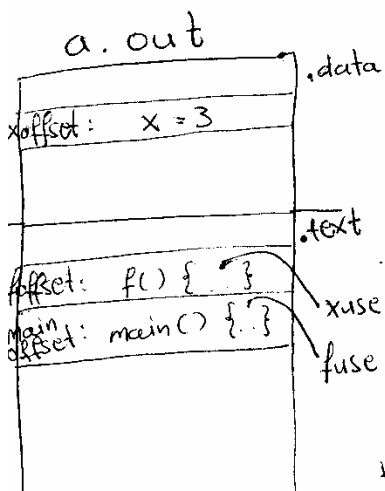 a.out
.data
xoffset: x = 3
.text
foffset: f() {..}
xuse
main
offset: main() {..}
fuse